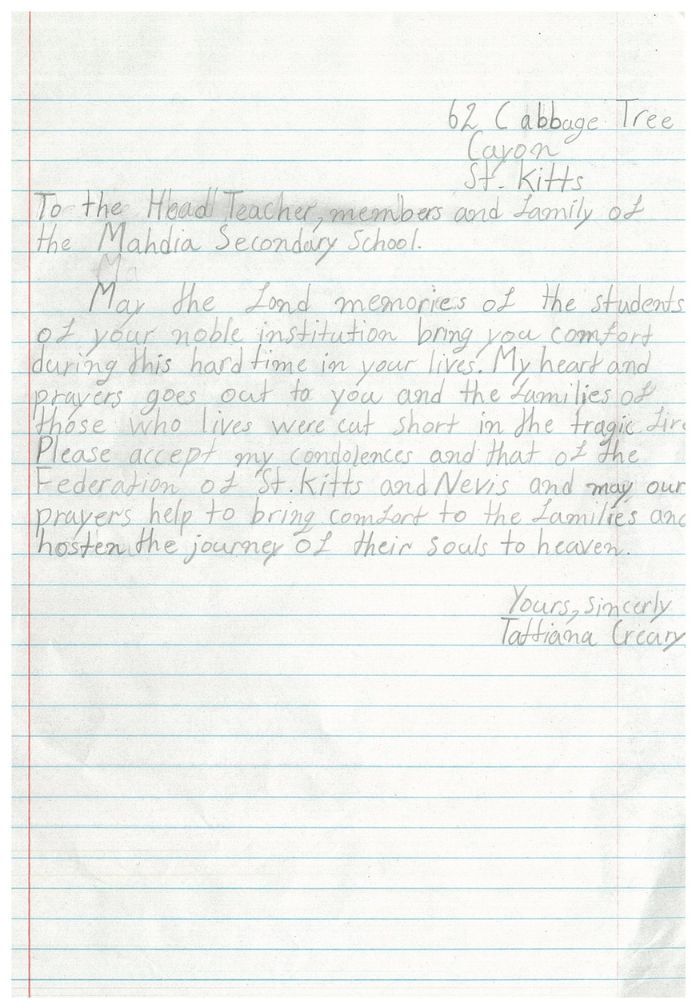 62 Cabbage Tree
Cayon
St. Kitts
To the Head Teacher, members and family of
the Mahdia Secondary School.
Ma
May the fond memories of the students
of your noble institution bring you comfort
during this hard time in your lives. My heart and
prayers goes out to you and the families of
those who lives were cut short in the tragic fire
Please accept my condolences and that of the
Federation of St. Kitts and Nevis and may our
prayers help to bring comfort to the families and
hosten the journey of their souls to heaven.
Yours, sincerly
Tattiana Creary